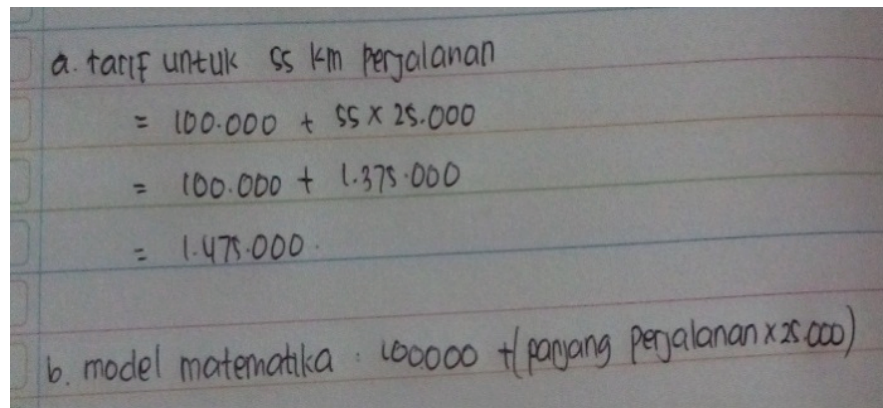 a. tarif untuk 55 km perjalanan
= 100.000 + 55 x 25.000
= 100.000 + 1.375.000
= 1.475.000.
b. model matematika : 100000 + (panjang perjalanan x 25.000)